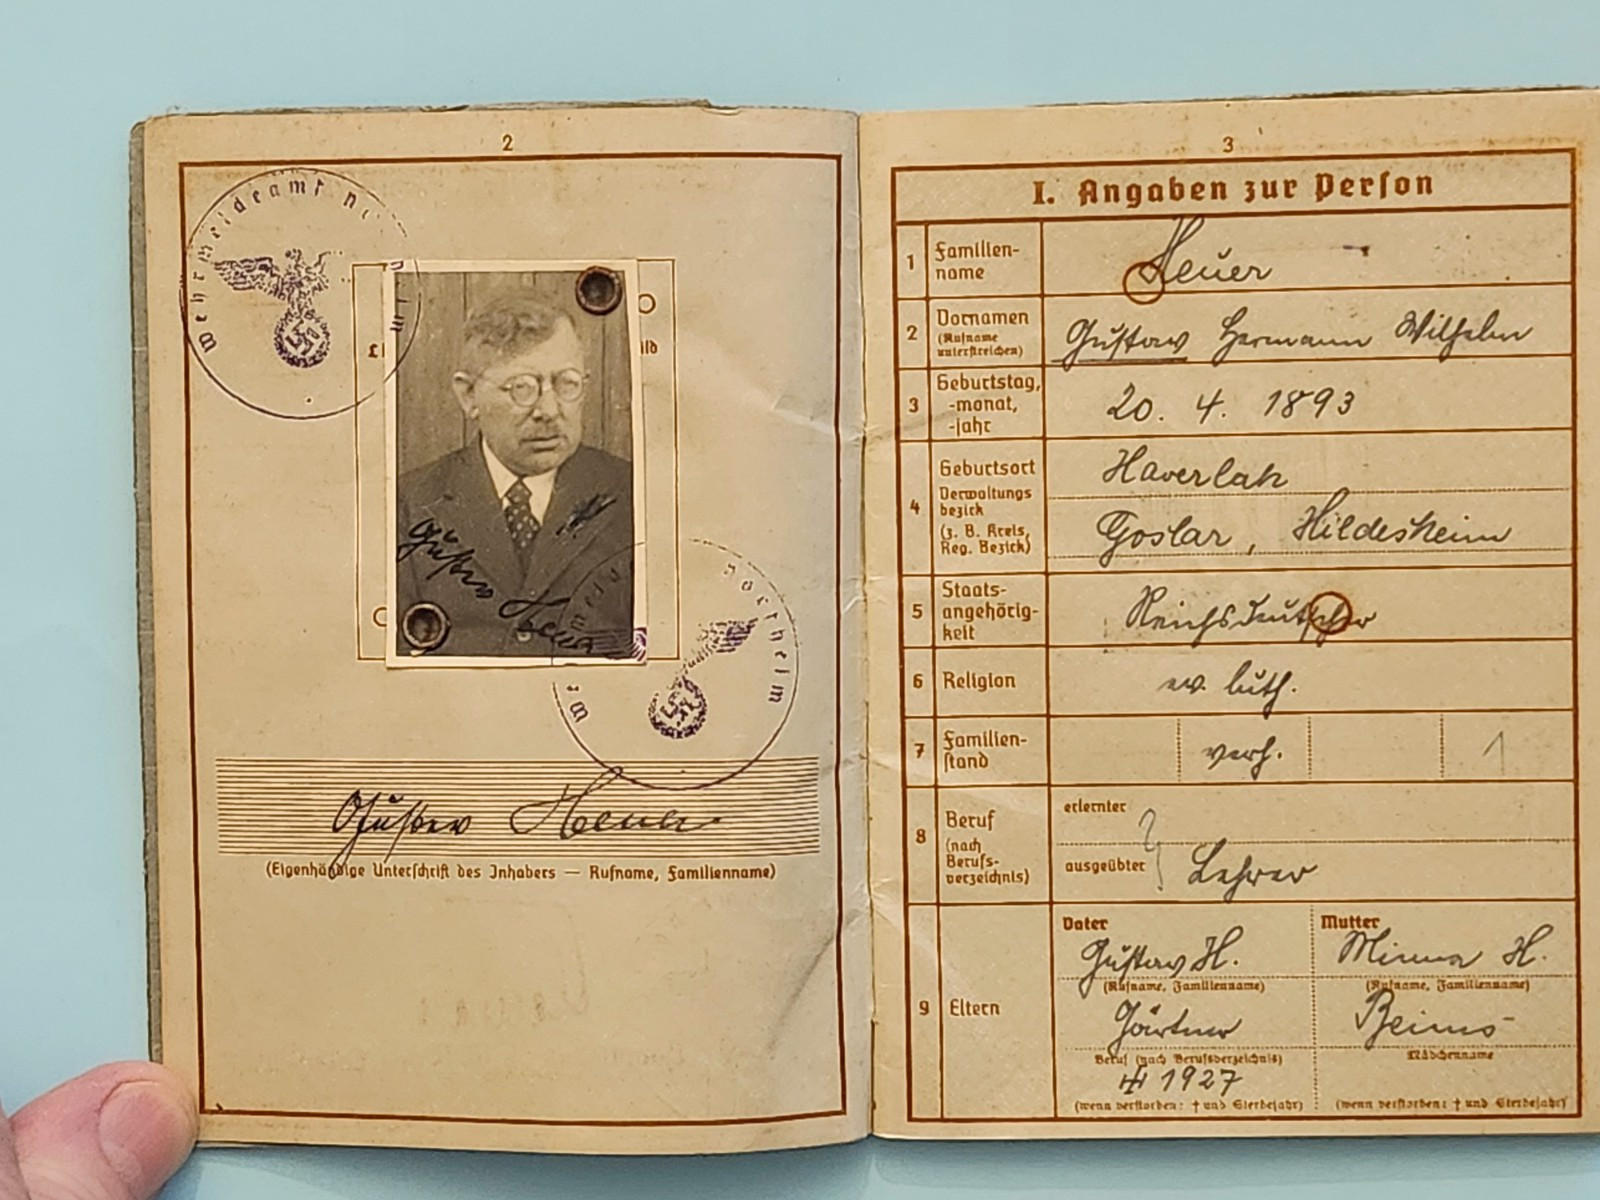 2
Wehrmeldeamt
Gustav Heuer
Wehrmelde
northeim
Gustav Heuer
(Eigenhändige Unterschrift des Inhabers — Rufname, Familienname)
3
I. Angaben zur Person
1 Familien-
name
Heuer
2 Vornamen
(Rufname
unterstreichen)
Gustav Hermann Wilhelm
3 Geburtstag,
-monat,
-jahr
20. 4. 1893
4 Geburtsort
Verwaltungs
bezirk
(z. B. Kreis,
Reg. Bezirk)
Haverlah
Goslar, Hildesheim
5 Staats-
angehörig-
keit
Reichsdeutscher
6 Religion
ev. luth.
7 Familien-
stand
verh. 1
8 Beruf
(nach
Berufs-
verzeichnis)
erlernter
ausgeübter Lehrer
9 Eltern
Vater
Gustav H.
(Rufname, Familienname)
Gärtner
Beruf (nach Berufsverzeichnis)
1927
(wenn verstorben: † und Sterbejahr)
Mutter
Minna H.
(Rufname, Familienname)
Beims
Mädchenname
(wenn verstorben: † und Sterbejahr)